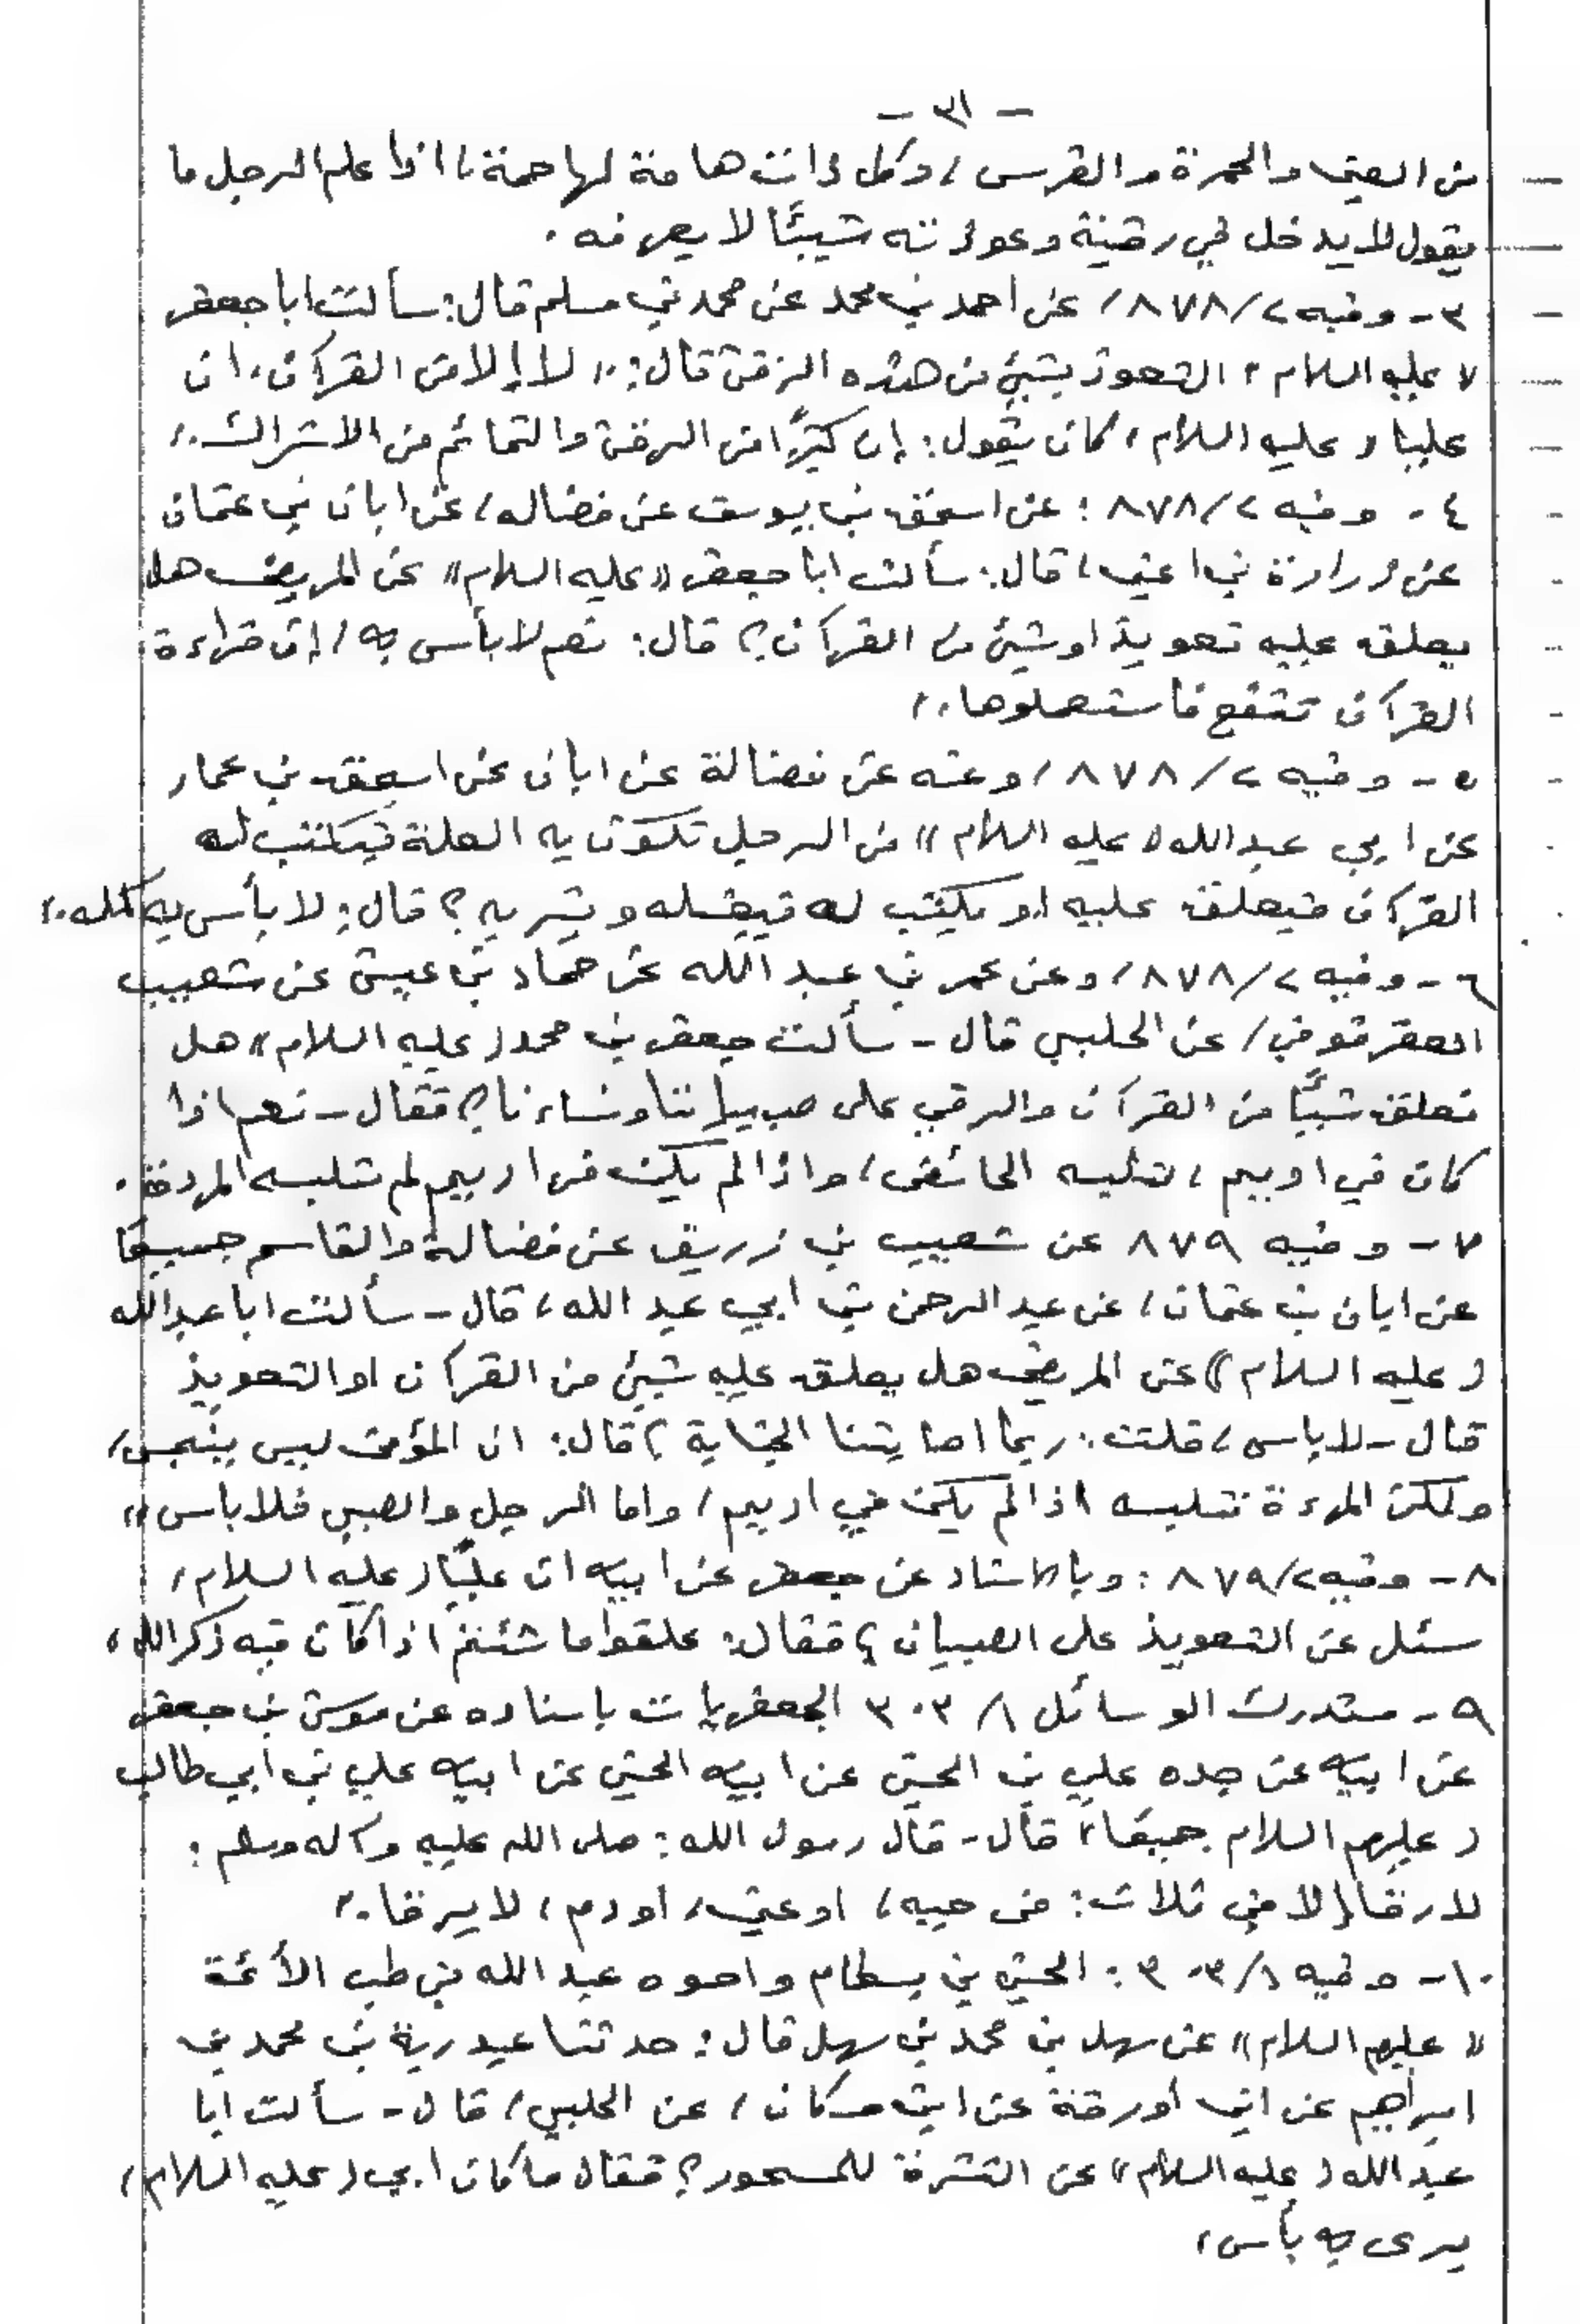 - ٣١ -
من العين والحمرة والضرس، وكل ذات هامة لها حمة، اذا علم الرجل ما
يقول لا يدخل في رقيته وعوذته شيئًا لا يعرفه.
٣- وفيه ٢/٨٧٨، عن احمد بن محمد عن محمد بن مسلم قال: سألت ابا جعفر
«عليه السلام» التعوذ بشيئ من هذه الرقى قال: «لا إلا من القرآن، ان
عليا (عليه السلام) كان يقول: إن كثيرًا من الرقى والتمائم من الاشراك.»
٤- وفيه ٢/٨٧٨: عن اسحق بن يوسف عن فضاله، عن ابان بن عثمان
عن زرارة بن اعين، قال: سألت ابا جعفر «عليه السلام» عن المريض هل
يعلق عليه تعويذ او شيئ من القرآن؟ قال: نعم لا بأس به، إن قراءة
القرآن تنفع فاستعملوها.»
٥- وفيه ٢/٨٧٨، وعنه عن فضالة عن ابان عن اسحق بن عمار
عن ابي عبد الله «عليه السلام» من الرجل تكون به العلة فيكتب له
القرآن فيعلق عليه او يكتب له فيغسله ويشربه؟ قال: لا بأس به كله.»
٦- وفيه ٢/٨٧٨، وعن عمر بن عبد الله عن حماد بن عيسى عن شعيب
العقرقوفي، عن الحلبي قال- سألت جعفر بن محمد (عليه السلام» هل
نعلق شيئًا من القرآن والرقي على صبياننا ونساءنا؟ فقال- نعم اذا
كان في اديم، تلبسه الحائض، واذا لم يكن في اديم لم تلبسه المرءة.
٧- وفيه ٨٧٩ عن شعيب بن زريق عن فضالة والقاسم جميعًا
عن ابان بن عثمان، عن عبد الرحمن بن أبي عبد الله، قال- سألت ابا عبد الله
(عليه السلام)) عن المريض هل يعلق عليه شيئ من القرآن او التعويذ
قال- لا باس، قلت: ربما اصابتنا الجنابة؟ قال: ان المؤمن ليس ينجس،
ولكن المرءة تلبسه اذا لم يكن في اديم، واما الرجل والصبي فلا باس»
٨- وفيه ٢/٨٧٩: وبالاسناد عن جعفر عن ابيه ان عليًا (عليه السلام)
سئل عن التعويذ على الصبيان؟ فقال: علقوا ما شئتم اذا كان فيه ذكر الله،
٩- مستدرك الوسائل ٨/٣٠٣ الجعفريات باسناده عن موسى بن جعفر
عن ابيه عن جده علي بن الحسين عن ابيه الحسين عن ابيه علي بن أبي طالب
(عليهم السلام جميعًا) قال- قال رسول الله: صلى الله عليه وآله وسلم:
لا رقا إلا في ثلاث: في حيه، او عين، او دم، لا يرقا.»
١٠- وفيه ٨/٣٠٣: الحسين بن بسطام واخوه عبد الله بن طب الأئمة
«عليهم السلام» عن سهل بن محمد بن سهل قال: حدثنا عبد ربة بن محمد بن
ابراهيم عن ابن أورمة عن ابن مسكان، عن الحلبي، قال- سألت ابا
عبد الله (عليه السلام» عن النشرة للمسحور؟ فقال ما كان ابي (عليه السلام)
يرى به بأس،